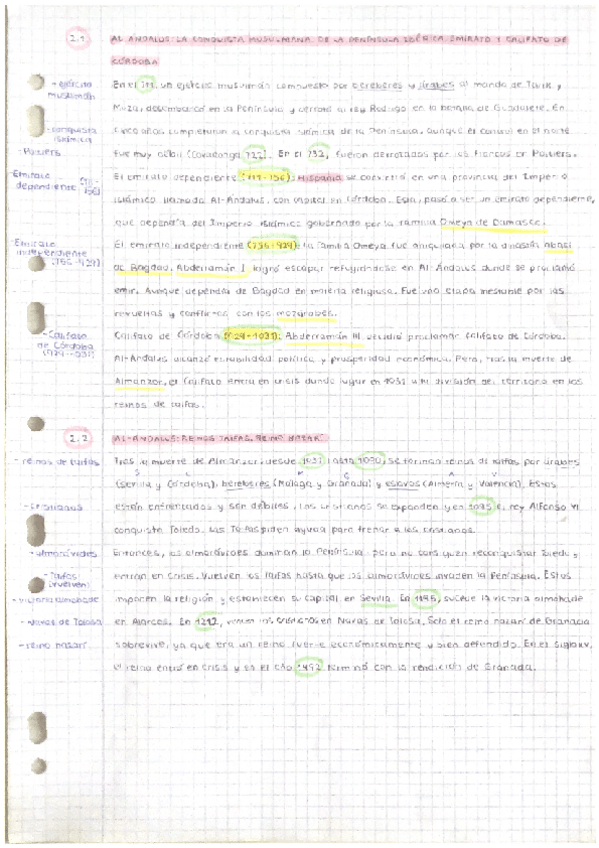 2.1 AL ANDALUS: LA CONQUISTA MUSULMANA DE LA PENÍNSULA IBÉRICA. EMIRATO Y CALIFATO DE
CÓRDOBA
- ejército
musulmán
En el 711, un ejército musulmán compuesto por bereberes y árabes al mando de Tarik y
Muza, desembarcó en la Península y derrotó al rey Rodrigo en la batalla de Guadalete. En
- conquista
islámica
cinco años completaron la conquista islámica de la Península, aunque el control en el norte
- Poitiers
fue muy débil (Covadonga 722). En el 732, fueron derrotados por los francos en Poitiers.
Emirato (711-
dependiente 756)
El emirato dependiente (711-756): Hispania se convirtió en una provincia del Imperio
islámico llamada Al-Ándalus, con capital en Córdoba. Esta, pasó a ser un emirato dependiente,
que dependía del Imperio islámico gobernado por la familia Omeya de Damasco.
Emirato
independiente
(756-929)
El emirato independiente (756-929): la familia Omeya fue aniquilada por la dinastía abasí
de Bagdad. Abderramán I logró escapar refugiándose en Al-Ándalus donde se proclamó
emir. Aunque dependía de Bagdad en materia religiosa. Fue una etapa inestable por las
revueltas y conflictos con los mozárabes.
- Califato
de Córdoba
(929-1031)
Califato de Córdoba (929-1031): Abderramán III decidió proclamar califato de Córdoba.
Al-Ándalus alcanzó estabilidad política y prosperidad económica. Pero, tras la muerte de
Almanzor, el Califato entra en crisis dando lugar en 1031 a la división del territorio en los
reinos de taifas.
2.2 AL-ÁNDALUS: REINOS TAIFAS. REINO NAZARÍ
- reinos de taifas
Tras la muerte de Almanzor, desde 1031 hasta 1090, se forman reinos de taifas por árabes
S C M G A V
(Sevilla y Córdoba), bereberes (Málaga y Granada) y eslavos (Almería y Valencia). Estos
- cristianos
están enfrentados y son débiles, los cristianos se expanden y en 1085 el rey Alfonso VI
conquista Toledo. Las Taifas piden ayuda para frenar a los cristianos.
- almorávides
Entonces, los almorávides dominan la Península pero no consiguen reconquistar Toledo y
- Taifas
(vuelven)
entran en crisis. Vuelven los taifas hasta que los almorávides invaden la Península. Estos
- victoria almohade
imponen la religión y establecen su capital en Sevilla. En 1195, sucede la victoria almohade
- Navas de Tolosa
en Alarcos. En 1212, vencen los cristianos en Navas de Tolosa. Solo el reino nazarí de Granada
- reino nazarí
sobrevive, ya que era un reino fuerte económicamente y bien defendido. En el siglo XV,
el reino entró en crisis y es el año 1492 terminó con la rendición de Granada.